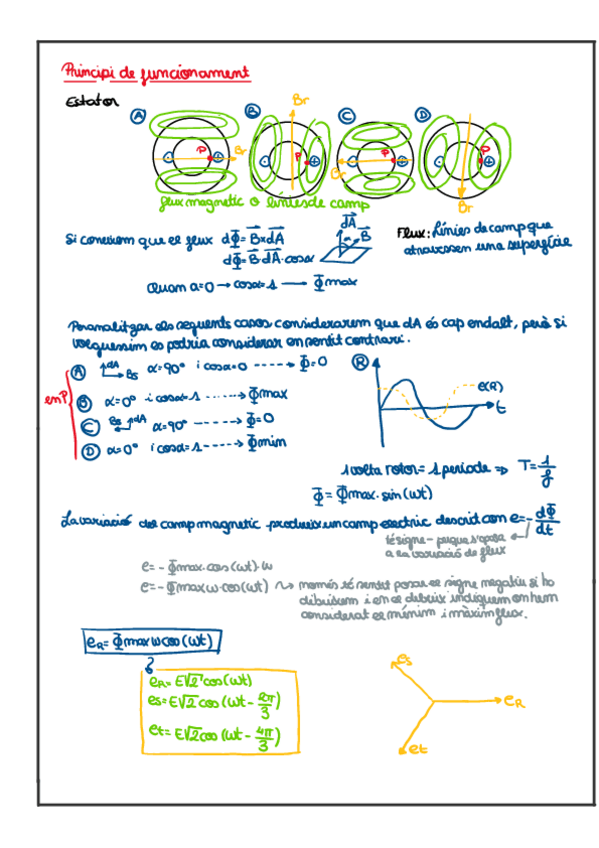 Principi de funcionament
Estator
A B C D
Br Br Br Br
P P P P
flux magnetic o linies de camp
Si coneixem que el flux dΦ = B × dA
dΦ = B · dA · cosα
Quan α=0 → cosα=1 → Φmax
dA
α B
Flux: Línies de camp que
atravessen una superfície
Per analitzar els següents casos considerarem que dA és cap endalt, però si
volguessim es podria considerar en sentit contrari.
en P
A dA Bs α=90° i cosα=0 -----→ Φ=0
B α=0° i cosα=1 ------→ Φmax
C Bs dA α=90° -----→ Φ=0
D α=0° i cosα=1 -----→ Φmin
R e(R) t
1 volta rotor = 1 període ⇒ T= 1/f
Φ = Φmax · sin(ωt)
La variació del camp magnetic produeix un camp electric descrit com e=- dΦ/dt
té signe - perque s'oposa
a la variació de flux
e= - Φmax · cos(ωt) · ω
e= - Φmax ω · cos(ωt) → només té sentit posar el signe negatiu si ho
dibuixem i en el dibuix indiquem on hem
considerat el mínim i màxim flux.
eR= Φmax ω cos(ωt)
eR= E√2 cos(ωt)
es= E√2 cos(ωt - 2π/3)
et= E√2 cos(ωt - 4π/3)
es
eR
et